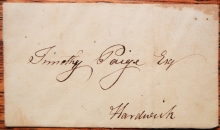 Timothy Paige Esq
Hardwick